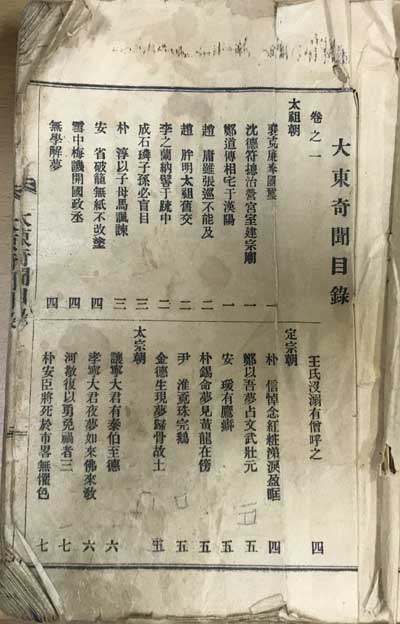 大東奇聞目錄
卷之一
太祖朝
沈德符摠治營宮室建宗廟 一
鄭道傳相宅于漢陽 一
趙 庸雖張巡不能及 二
趙 胖明太祖舊交 二
李之蘭納髻于疏中 二
成石璘子孫必盲目 三
朴 淳以子母馬諷諫 三
安 省破籠無紙不改塗 四
雪中梅譏開國政丞 四
無學解夢 四
王氏沒溺有僧呼之 四
定宗朝
朴 信悼念紅粧涕淚盈眶 四
鄭以吾夢占文武壯元 五
安 瑗有鷹癖 五
朴錫命夢見黃龍在傍 五
尹 淮覔珠完鵝 五
金德生現夢歸骨故土 五
太宗朝
讓寧大君有泰伯至德 六
孝寧大君夜夢如來佛來敎 六
河敬復以勇免禍者三 七
朴安臣將死於市畧無懼色 七